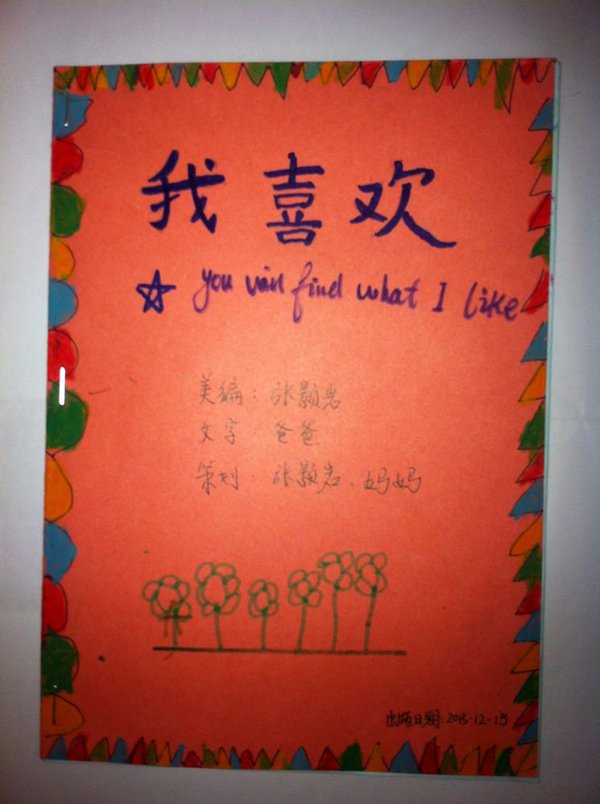 我喜欢
☆ you win find what I like
美编：张颢岩
文字：爸爸
策划：张颢岩、妈妈
出版日期·2013-12-15